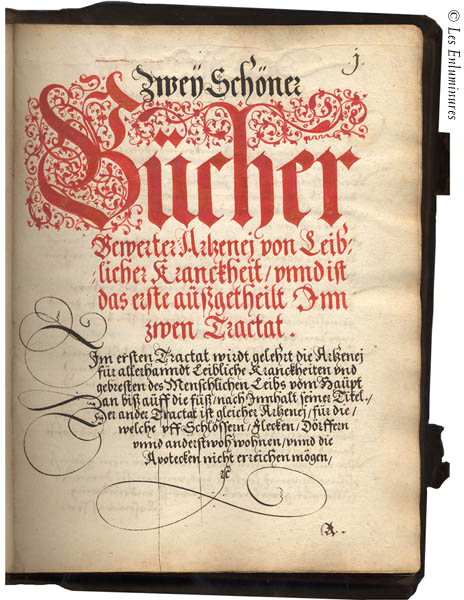 1.
Zweÿ Schöner
Bücher
Bewerter Artzenej von Leib-
licher Kranckheit / vnnd ist
das erste aüßgetheilt Inn
zwen Tractat.
Im ersten Tractat wirdt gelehrt die Artzenej
für allerhanndt Leibliche Kranckheiten vnd
gebresten des Menschlichen Leibs vom Haüpt
an biß aüff die füß / nach Innhalt seiner Titel.
Der ander Tractat ist gleicher Artzenej / für die /
welche vff Schlössern / Flecken / Dörffern
vnnd anderstwoh wohnen / vnnd die
Apotecken nicht erreichen mögen /
A.
© Les Enluminures